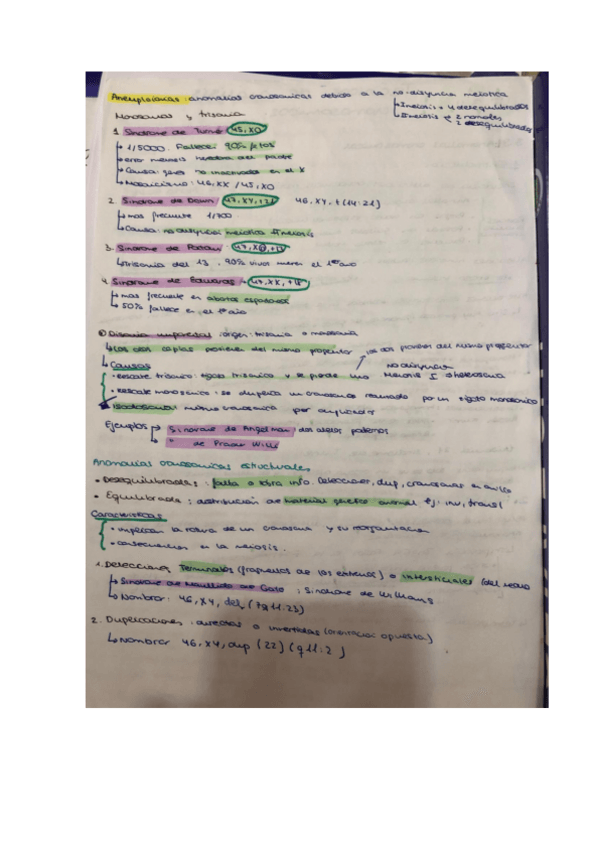 Aneuploidias: anomalias cromosomicas debido a la no-disyuncion meiotica
I meiosis = 4 desequilibrados
II meiosis = 2 normales
2 desequilibrados
Monosomias y trisomia
1. Sindrome de Turner 45, X0
1/5000. Fallecen 90% fetos
error meiosis del padre
Causa: genes no inactivados en el X
Mosaicismo: 46, XX / 45, X0
2. Sindrome de Down 47, XY, +21 46, XY, t(14:21)
mas frecuente 1/700
Causa: no disyuncion meiotica meiosis
3. Sindrome de Patau 47, +13
trisomia del 13. 90% vivos mueren el 1º año
4. Sindrome de Edwards 47, XX, +18
mas frecuente en abortos
50% fallece en el 1º año
Disomia uniparental: origen: trisomia o monosomia
Las dos copias del mismo progenitor
Causas
no disyuncion
rescate trisomico: cigoto trisomico y se pierde uno Meiosis I
rescate monosomico: se duplica un cromosoma por un cigoto monosomico
Isodisomia: mismo cromosoma por duplicado
Ejemplos Sindrome de Angelman dos alelos paternos
" de Prader Willi
Anomalias cromosomicas estructurales
• Desequilibradas: falta o sobra info. Delecciones, dup, cromosomas en anillo
• Equilibrada: distribución de material genetico anormal ej: inv, transl
Caracteristicas
• implican la rotura de un cromosoma y su reorganizacion
• consecuencias en la meiosis.
1. Delecciones Terminales (fragmentos de los extremos) o intersticiales (del medio
Sindrome de Maullido de Gato; Sindrome de Williams
Nombrar: 46, XY, del (7q11.23)
2. Duplicaciones: directas o invertidas (orientacion opuesta)
Nombrar 46, XY, dup (22) (q11.2)